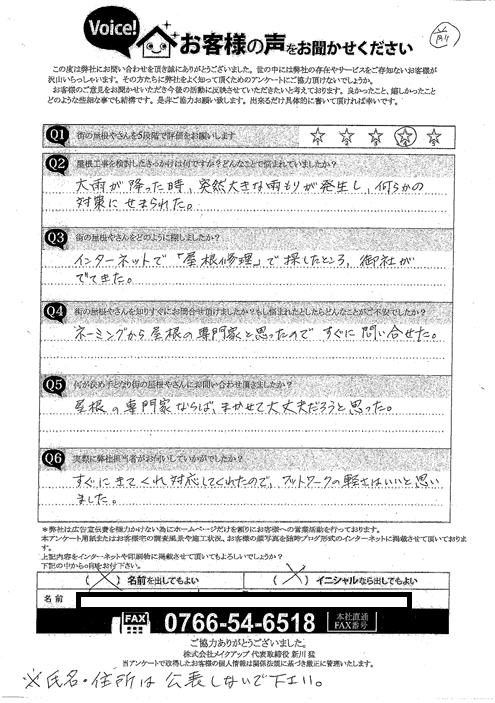 Voice!
お客様の声をお聞かせください
この度は弊社にお問い合わせを頂き誠にありがとうございます。世の中には弊社の存在やサービスをご存知ないお客様が
沢山いらっしゃいます。その方たちに弊社をよく知って頂くためのアンケートにご協力頂けないでしょうか。
お客様のご意見をお聞かせいただき今後の活動に反映させていただきたいと考えております。良かったこと、嬉しかったこと
どのような些細な事でも結構です。是非ご協力お願い致します。出来るだけ具体的に書いて頂ければ幸いです。
Q1 街の屋根やさんを5段階で評価をお願いします
Q2 屋根工事を検討したきっかけは何ですか？どんなことで悩まれていましたか？
大雨が降った時、突然大きな雨もりが発生し、何らかの
対策にせまられた。
Q3 街の屋根やさんをどのように探しましたか？
インターネットで「屋根修理」で探したところ、御社が
でてきた。
Q4 街の屋根やさんを知りすぐにお問合せ頂けましたか？もし悩まれたとしたらどんなことがご不安でしたか？
ネーミングから屋根の専門家と思ったのですぐに問い合せた。
Q5 何が決め手となり街の屋根やさんにお問い合わせ頂きましたか？
屋根の専門家ならば、まかせて大丈夫だろうと思った。
Q6 実際に弊社担当者がお伺いしていかがでしたか？
すぐにきてくれ対応してくれたので、フットワークの軽さはいいと思い
ました。
＊弊社は広告宣伝費を極力かけない為にホームページだけを頼りにお客様への営業活動を行っております。
本アンケート用紙またはお客様宅の調査風景や施工状況、お客様の顔写真を随時ブログ形式のインターネットに掲載させて頂いておりま
す。
上記内容をインターネットや印刷物に掲載させて頂いてもよろしいでしょうか？
下記の中から○印をお付下さい。
( ) 名前を出してもよい ( ) イニシャルなら出してもよい
名前
FAX 0766-54-6518 本社直通
FAX番号
ご協力ありがとうございました。
株式会社メイクアップ 代表取締役 新川 猛
当アンケートで取得したお客様の個人情報は関係法規に基づき厳正に管理いたします。
※氏名・住所は公表しないで下さい。